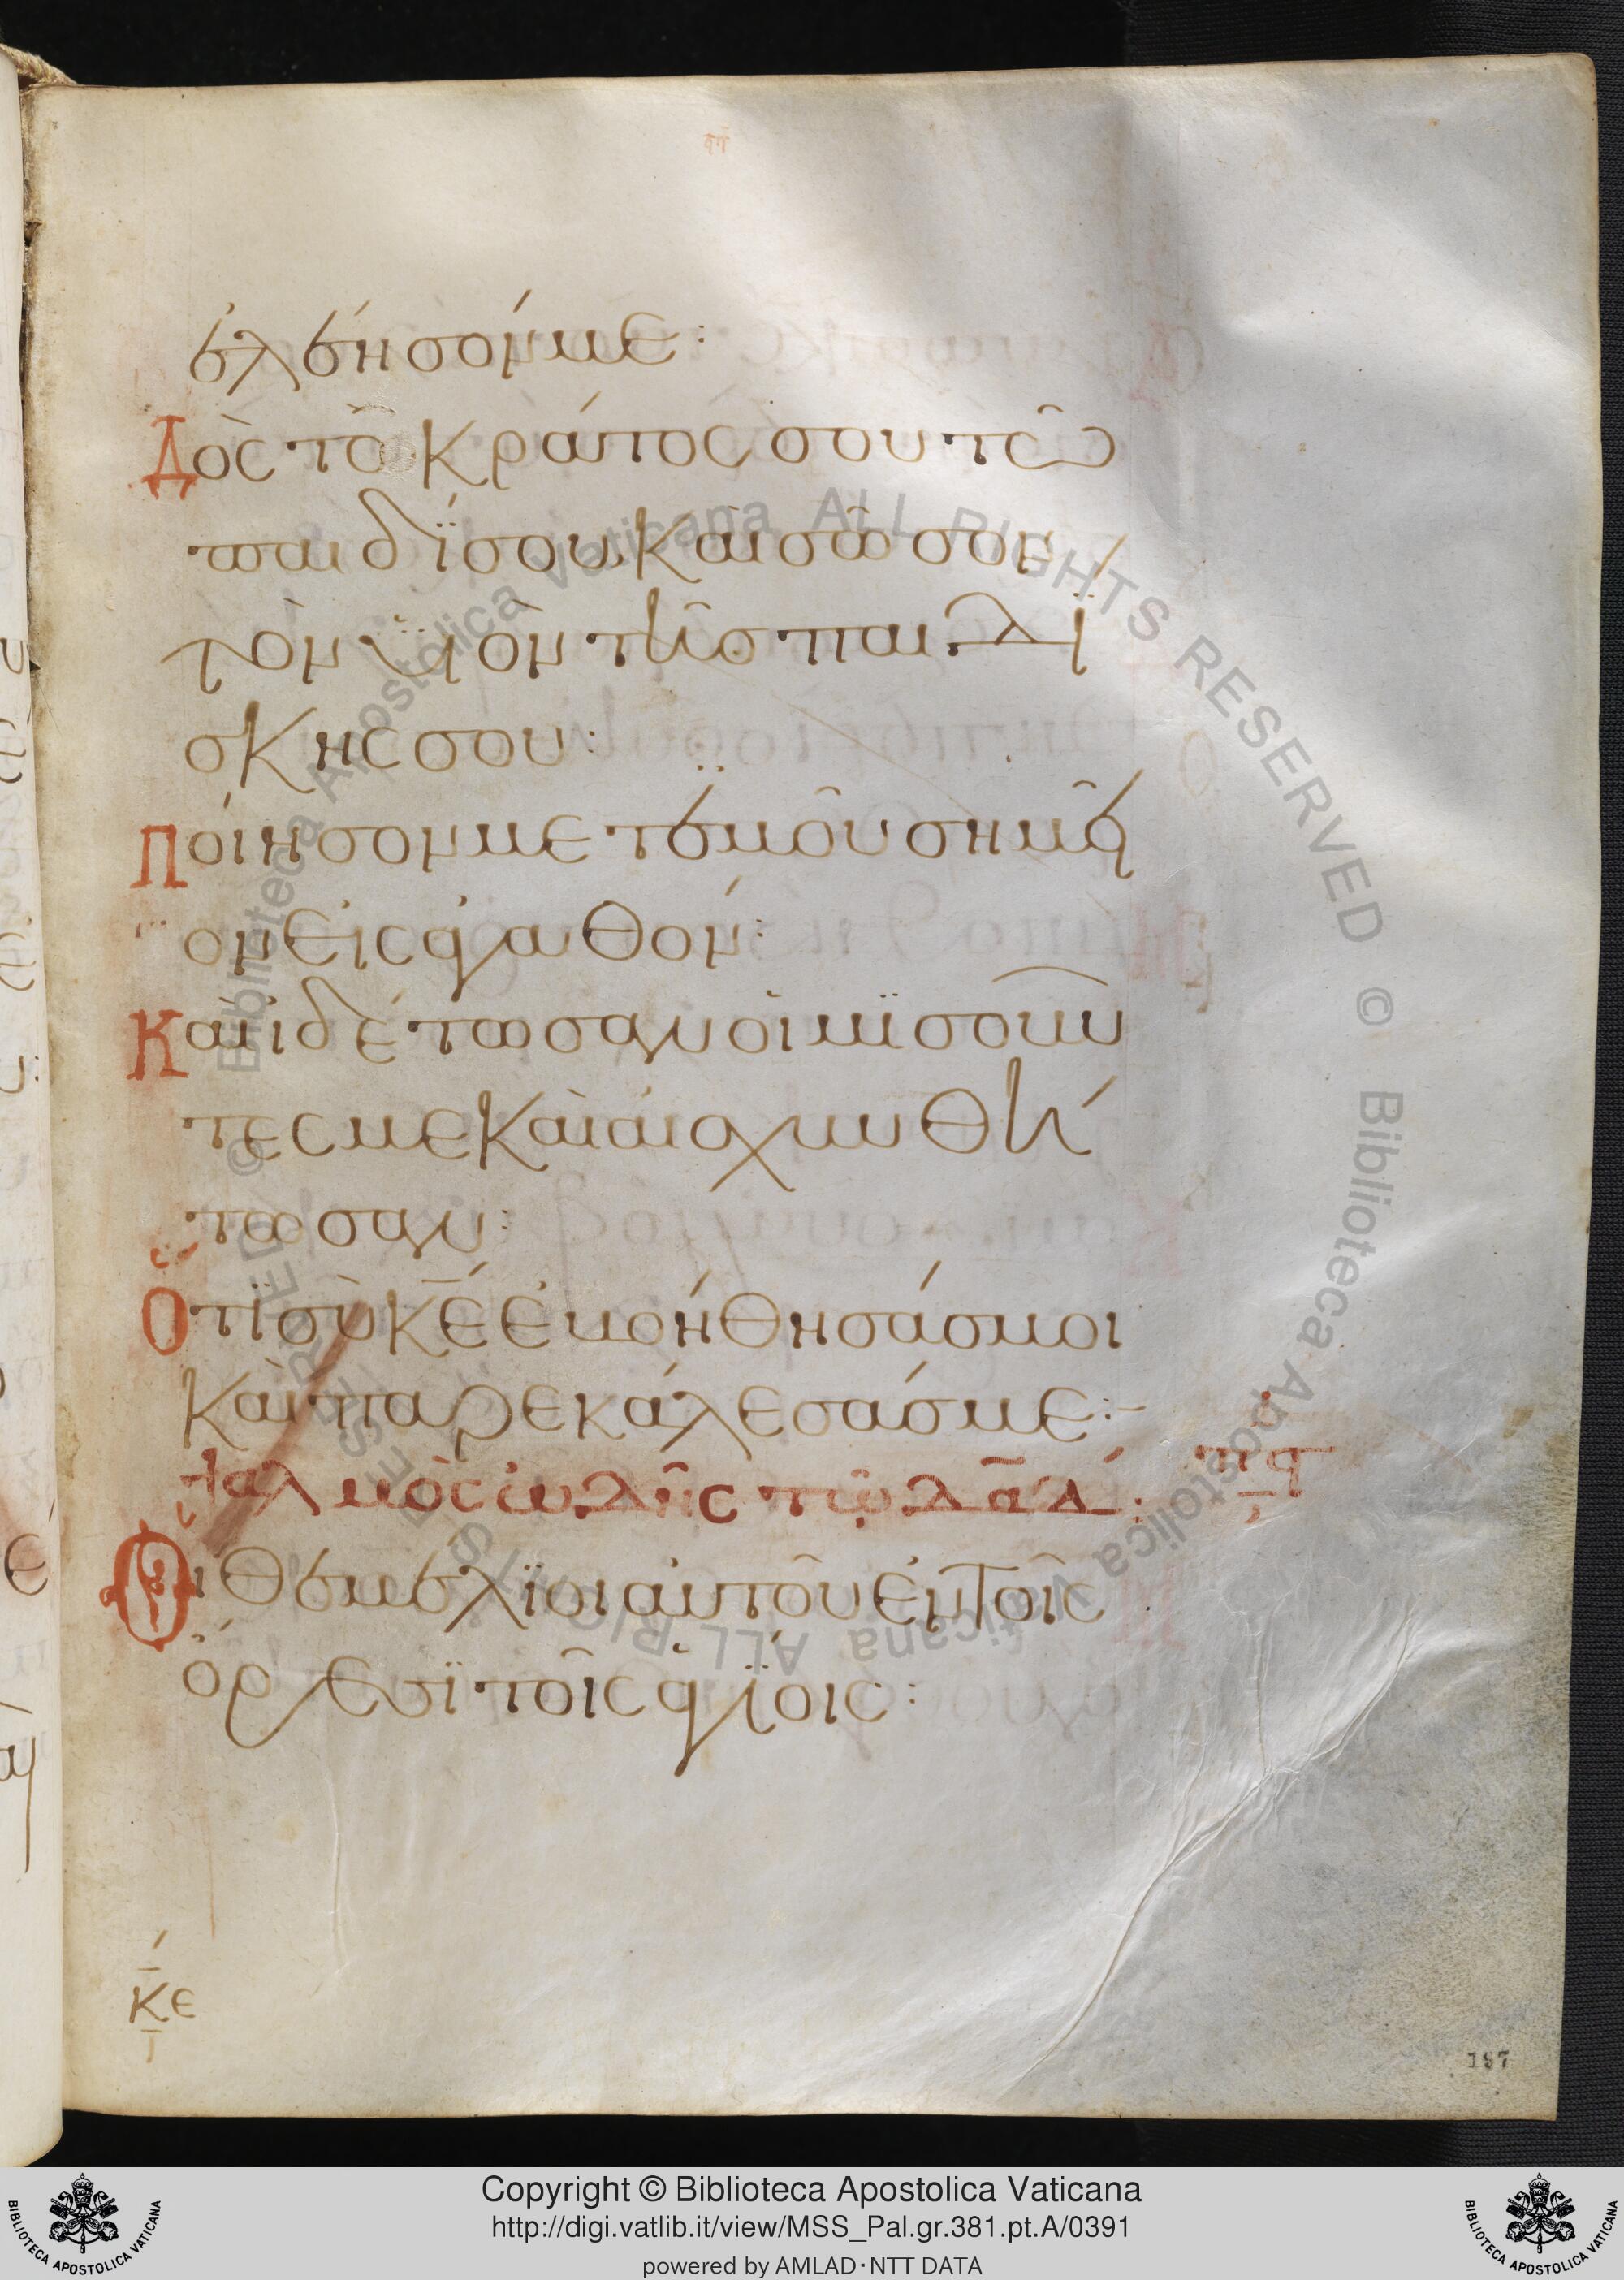 ἐλέησόν με:
Δὸς τὸ κράτος σου τῶ
παιδί σου καὶ σῶσον
τὸν ϋἱὸν τῆς παιδί
σκης σου:
Ποίησον μετ' ἐμοῦ σημεῖ
ον εἰς ἀγαθόν:
Καὶ ἰδέτωσαν οἱ μισοῦν
τές με καὶ αἰσχυνθή
τωσαν:
Ὅτι σὺ κε̅ ἐβοήθησάς μοι
καὶ παρεκάλεσάς με:-
πϛ
Ψαλμὸς ὠδῆς τῷ δα̅δ:
Οἱ θεμέλιοι αὐτοῦ ἐν τοῖς
ὄρεσι τοῖς ἁγίοις:
κε
187
Copyright © Biblioteca Apostolica Vaticana
http://digi.vatlib.it/view/MSS_Pal.gr.381.pt.A/0391
powered by AMLAD·NTT DATA
BIBLIOTECA APOSTOLICA VATICANA
BIBLIOTECA APOSTOLICA VATICANA
© Biblioteca Apostolica Vaticana ALL RIGHTS RESERVED
© Biblioteca Apostolica Vaticana ALL RIGHTS RESERVED